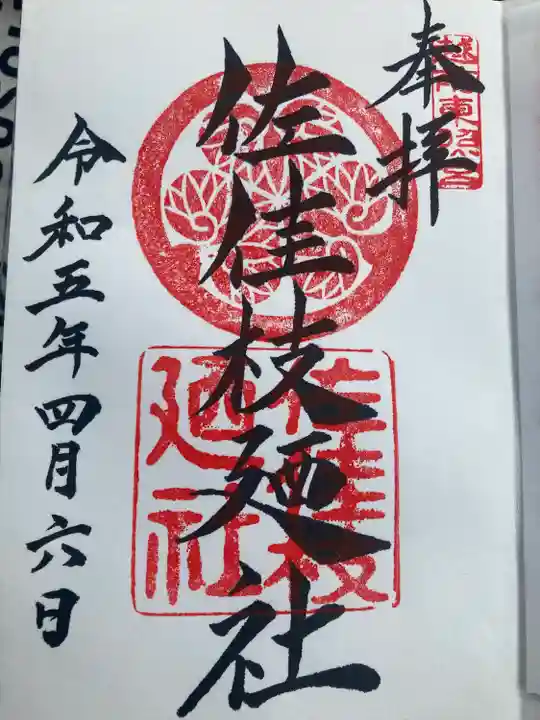 奉拝
越前東照宮
佐佳枝廼社
佐佳枝廼社
令和五年四月六日